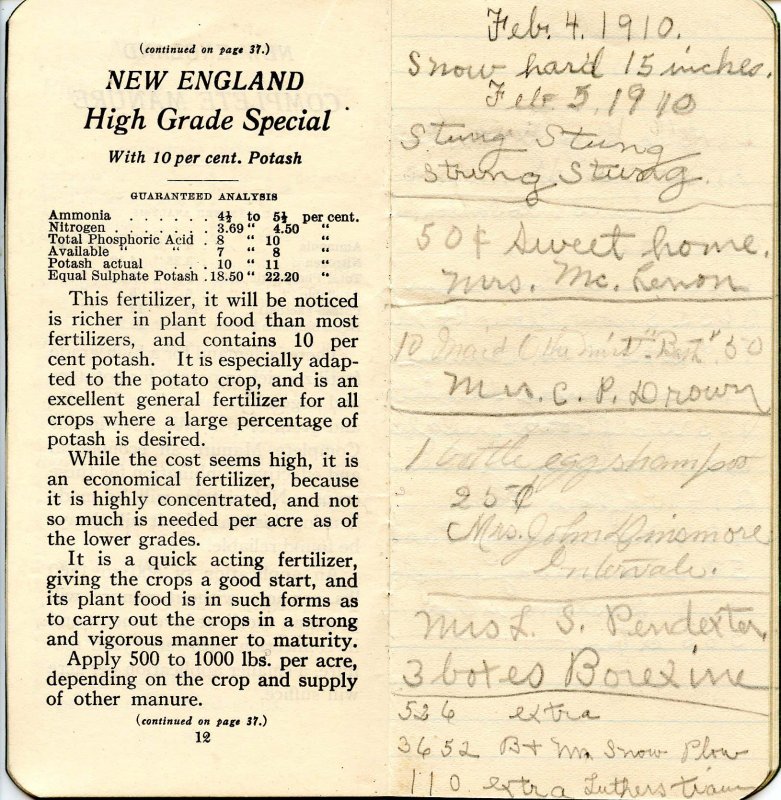 (continued on page 37.)
NEW ENGLAND
High Grade Special
With 10 per cent. Potash
GUARANTEED ANALYSIS
Ammonia . . . . . . . 4½ to 5½ per cent.
Nitrogen . . . . . . . 3.69 " 4.50 "
Total Phosphoric Acid . 8 " 10 "
Available " " 7 " 8 "
Potash actual . . . 10 " 11 "
Equal Sulphate Potash . 18.50 " 22.20 "
This fertilizer, it will be noticed
is richer in plant food than most
fertilizers, and contains 10 per
cent potash. It is especially adap-
ted to the potato crop, and is an
excellent general fertilizer for all
crops where a large percentage of
potash is desired.
While the cost seems high, it is
an economical fertilizer, because
it is highly concentrated, and not
so much is needed per acre as of
the lower grades.
It is a quick acting fertilizer,
giving the crops a good start, and
its plant food is in such forms as
to carry out the crops in a strong
and vigorous manner to maturity.
Apply 500 to 1000 lbs. per acre,
depending on the crop and supply
of other manure.
(continued on page 37.)
12
Feb. 4. 1910.
Snow hard 15 inches.
Feb 5, 1910
Stung Stung
Strung Stung.
50¢ Sweet home.
Mrs. Mc. Lenon
10 50
Mrs. C. P. Drown
1 bottle egg shampoo
25¢
Mrs. John Dinsmore
Intervale.
Mrs L. S. Pendexter.
3 boxes Borexine
526 extra
3652 B+ Mn. Snow Plow
110 extra Luthers train